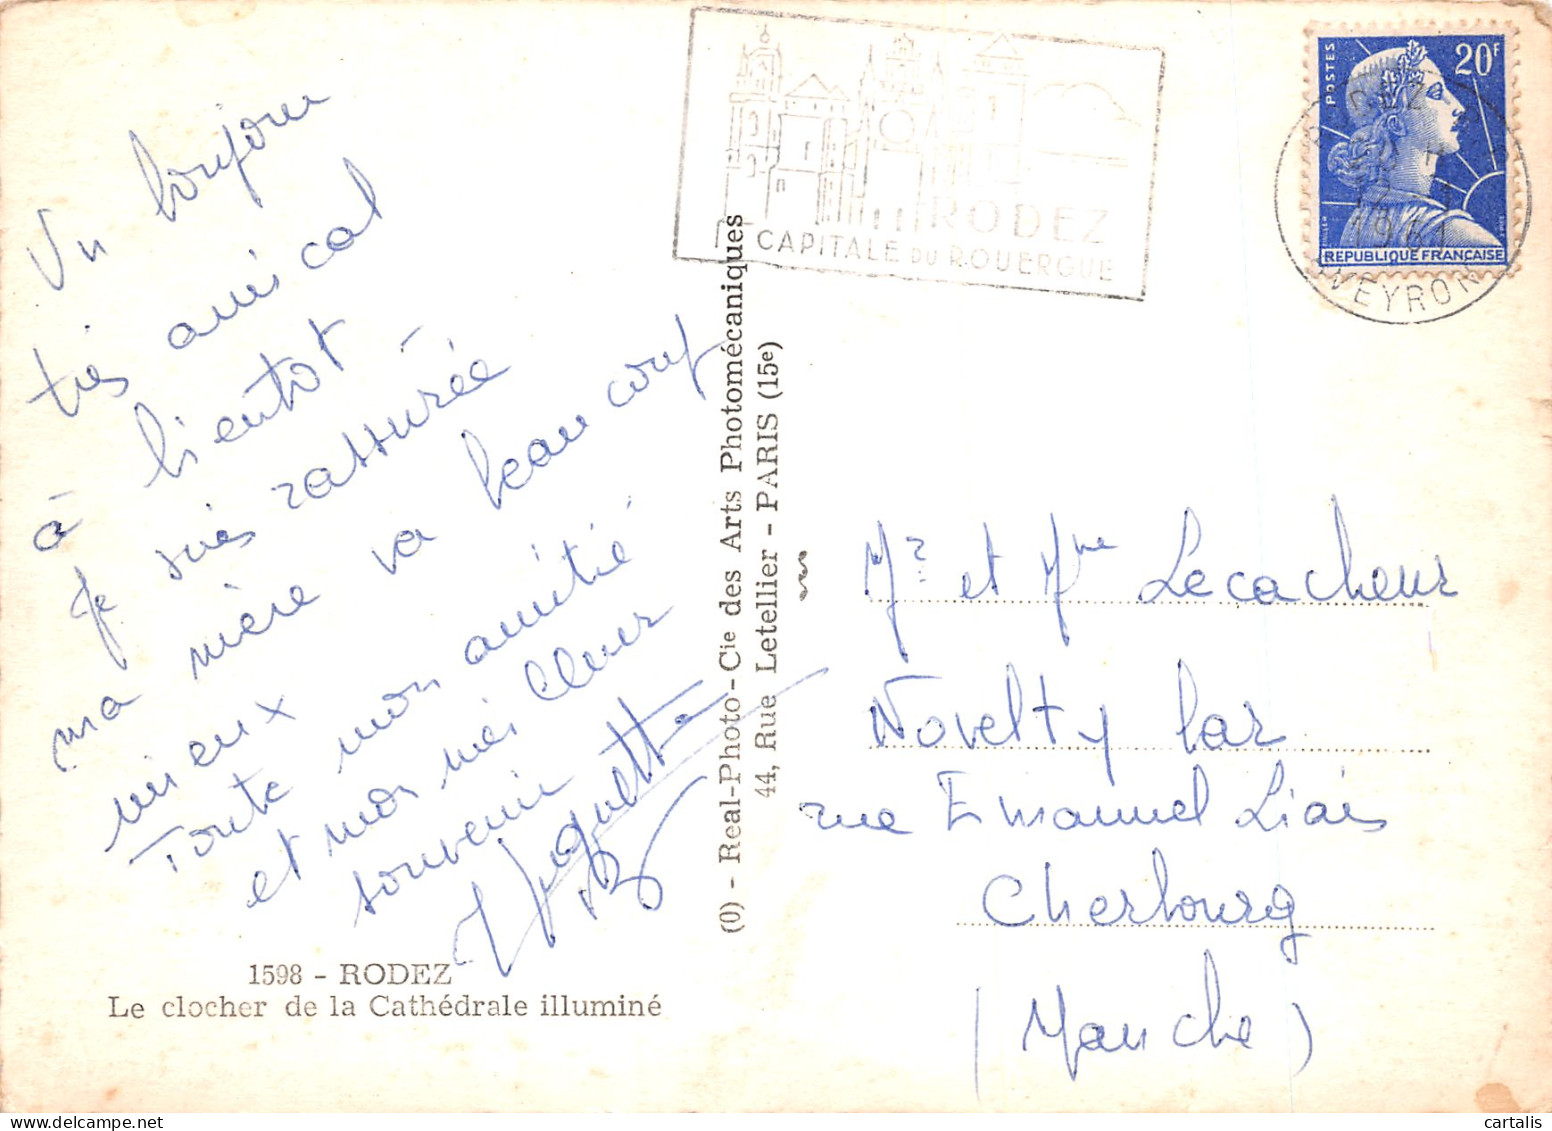 Un bonjour
très amical
à bientot
Je suis rassurée
ma mère va beaucoup
mieux
Toute mon amitié
et mon meilleur
souvenir
Jaquotte
1598 - RODEZ
Le clocher de la Cathédrale illuminé
(O) - Real-Photo - Cie des Arts Photomécaniques
44, Rue Letellier - PARIS (15e)
RODEZ
CAPITALE DU ROUERGUE
POSTES
20F
REPUBLIQUE FRANÇAISE
RODEZ
AVEYRON
Mr et Mme Lecacheur
Novelty bar
rue Emmanuel Liais
Cherbourg
(Manche)
cartalis